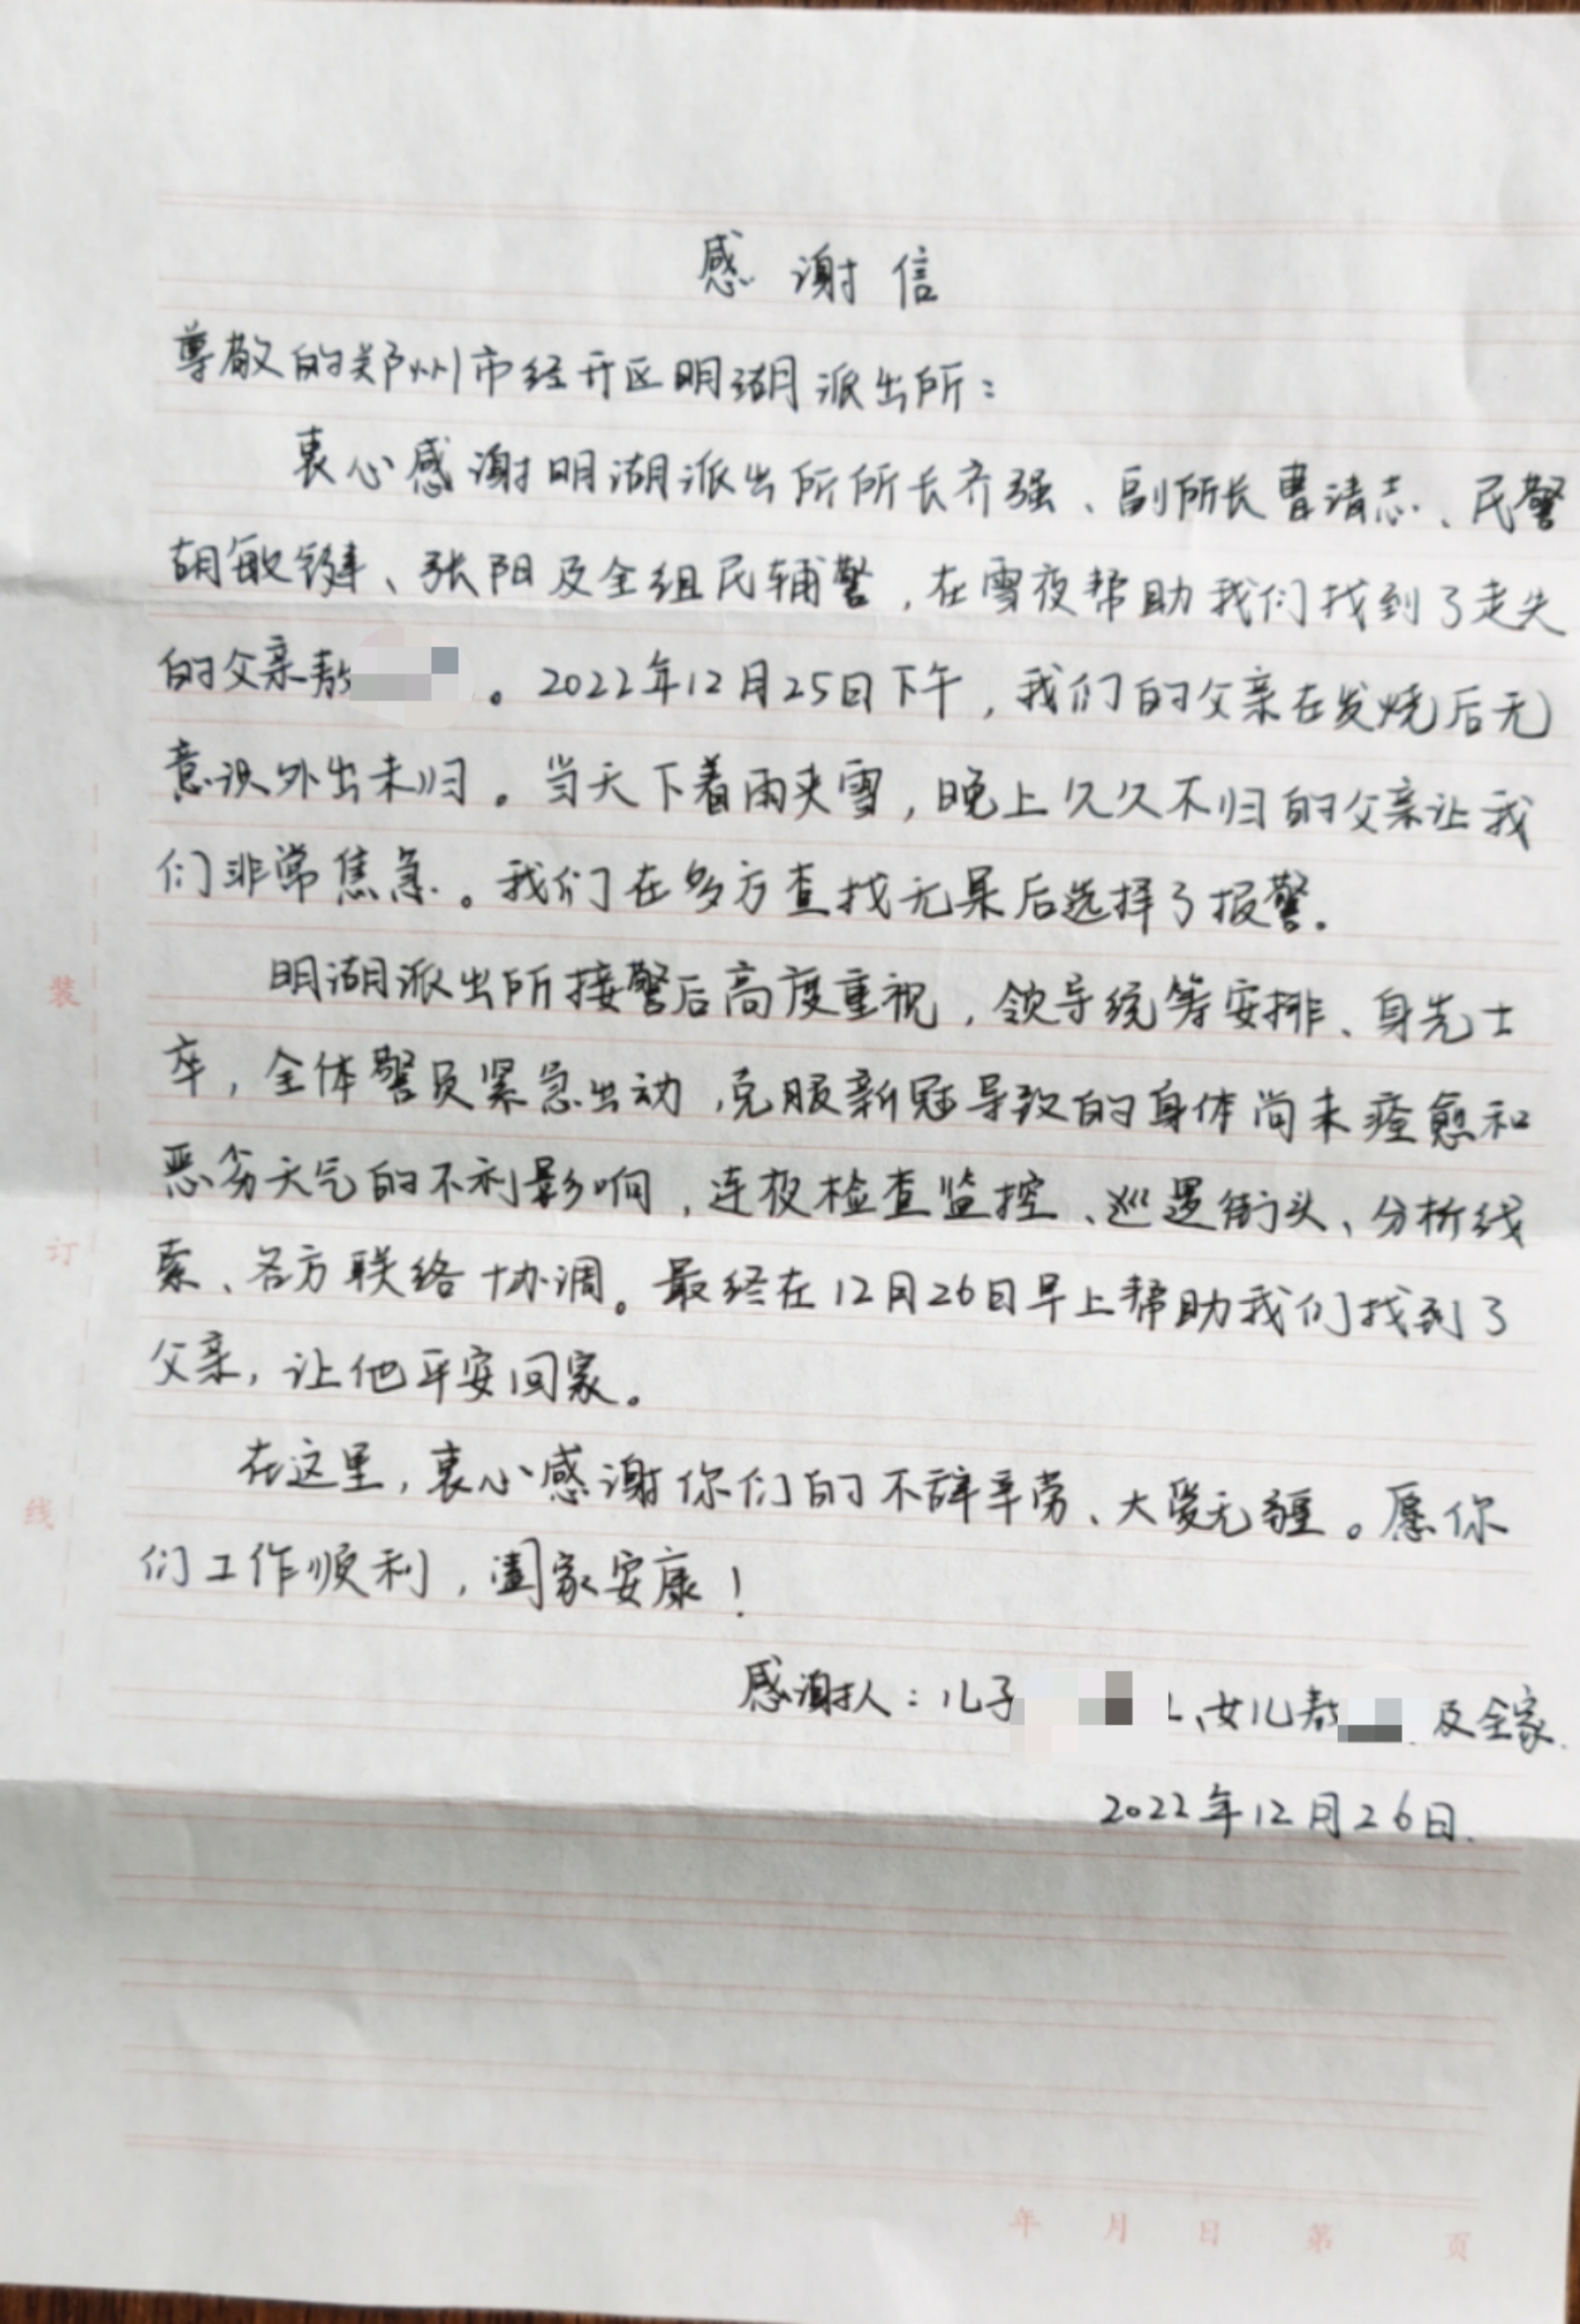 感谢信
尊敬的郑州市经开区明湖派出所：
衷心感谢明湖派出所所长齐强、副所长曹清志、民警
胡敏键、张阳及全组民辅警，在雪夜帮助我们找到了走失
的父亲敖。2022年12月25日下午，我们的父亲在发烧后无
意识外出未归。当天下着雨夹雪，晚上久久不归的父亲让我
们非常焦急。我们在多方查找无果后选择了报警。
明湖派出所接警后高度重视，领导统筹安排、身先士
卒，全体警员紧急出动，克服新冠导致的身体尚未痊愈和
恶劣天气的不利影响，连夜检查监控、巡逻街头、分析线
索、各方联络协调。最终在12月26日早上帮助我们找到了
父亲，让他平安回家。
在这里，衷心感谢你们的不辞辛劳、大爱无疆。愿你
们工作顺利，阖家安康！
感谢人：儿子、女儿敖及全家.
2022年12月26日.
装
订
线
年 月 日 第 页